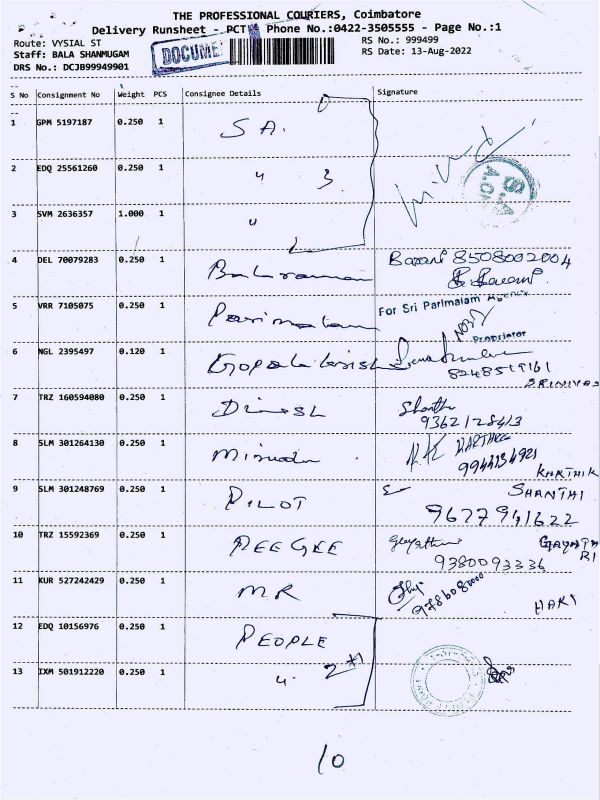 THE PROFESSIONAL COURIERS, Coimbatore
Delivery Runsheet - PCT Phone No.:0422-3505555 - Page No.:1
Route: VYSIAL ST
RS No.: 999499
Staff: BALA SHANMUGAM
RS Date: 13-Aug-2022
DRS No.: DCJB99949901
DOCUME
S No Consignment No Weight PCS Consignee Details Signature
1 GPM 5197187 0.250 1 S A.
2 EDQ 25561260 0.250 1 " 3
3 SVM 2636357 1.000 1 "
4 DEL 70079283 0.250 1 Barani 8508002004
5 VRR 7105075 0.250 1 For Sri Parimalam Agency
Proprietor
6 NGL 2395497 0.120 1 8248519161
SRINIVAS
7 TRZ 160594080 0.250 1 Dinesh
9362128413
8 SLM 301264130 0.250 1 KARTHICK
9944134921
KARTHIK
9 SLM 301248769 0.250 1 PILOT SHANTHI
9677941622
10 TRZ 15592369 0.250 1 PEEGEE GAYATHRI
9380093336
11 KUR 527242429 0.250 1 MR
HARI
12 EDQ 10156976 0.250 1 PEOPLE
13 IXM 501912220 0.250 1 " 2+1
10